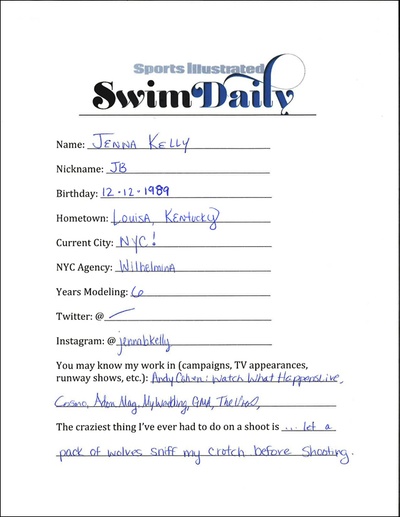 Sports Illustrated
Swim Daily
Name: Jenna Kelly
Nickname: JB
Birthday: 12-12-1989
Hometown: Louisa, Kentucky
Current City: NYC!
NYC Agency: Wilhelmina
Years Modeling: 6
Twitter: @ —
Instagram: @jennabkelly
You may know my work in (campaigns, TV appearances,
runway shows, etc.): Andy Cohen: Watch What Happens Live,
Cosmo, Adon Mag, My Wedding, GMA, The View,
The craziest thing I've ever had to do on a shoot is ... let a
pack of wolves sniff my crotch before shooting.